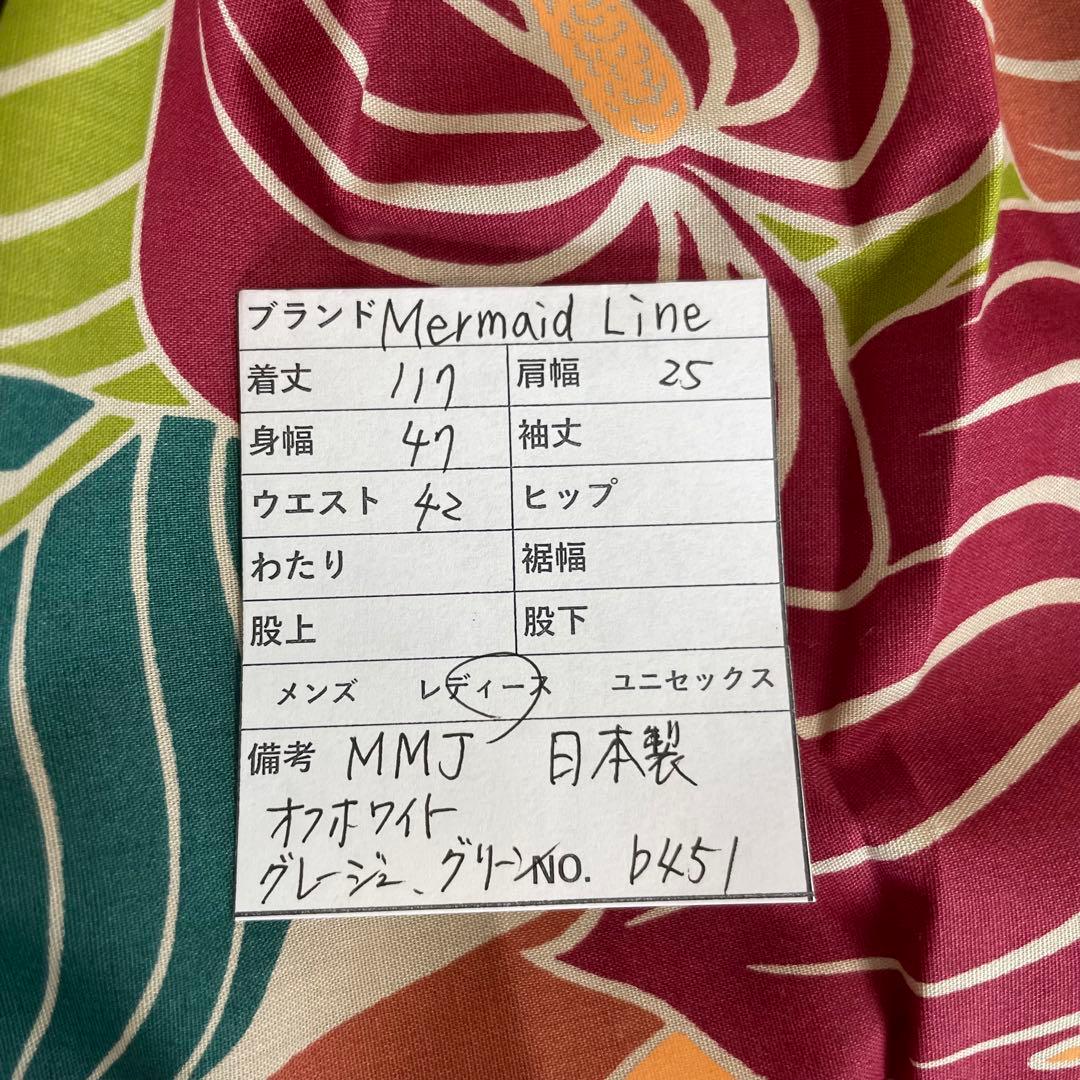 ブランド Mermaid Line
着丈 117 肩幅 25
身幅 47 袖丈
ウエスト 42 ヒップ
わたり 裾幅
股上 股下
メンズ レディース ユニセックス
備考 MMJ 日本製
オフホワイト
グレージュ、グリーン NO. b451